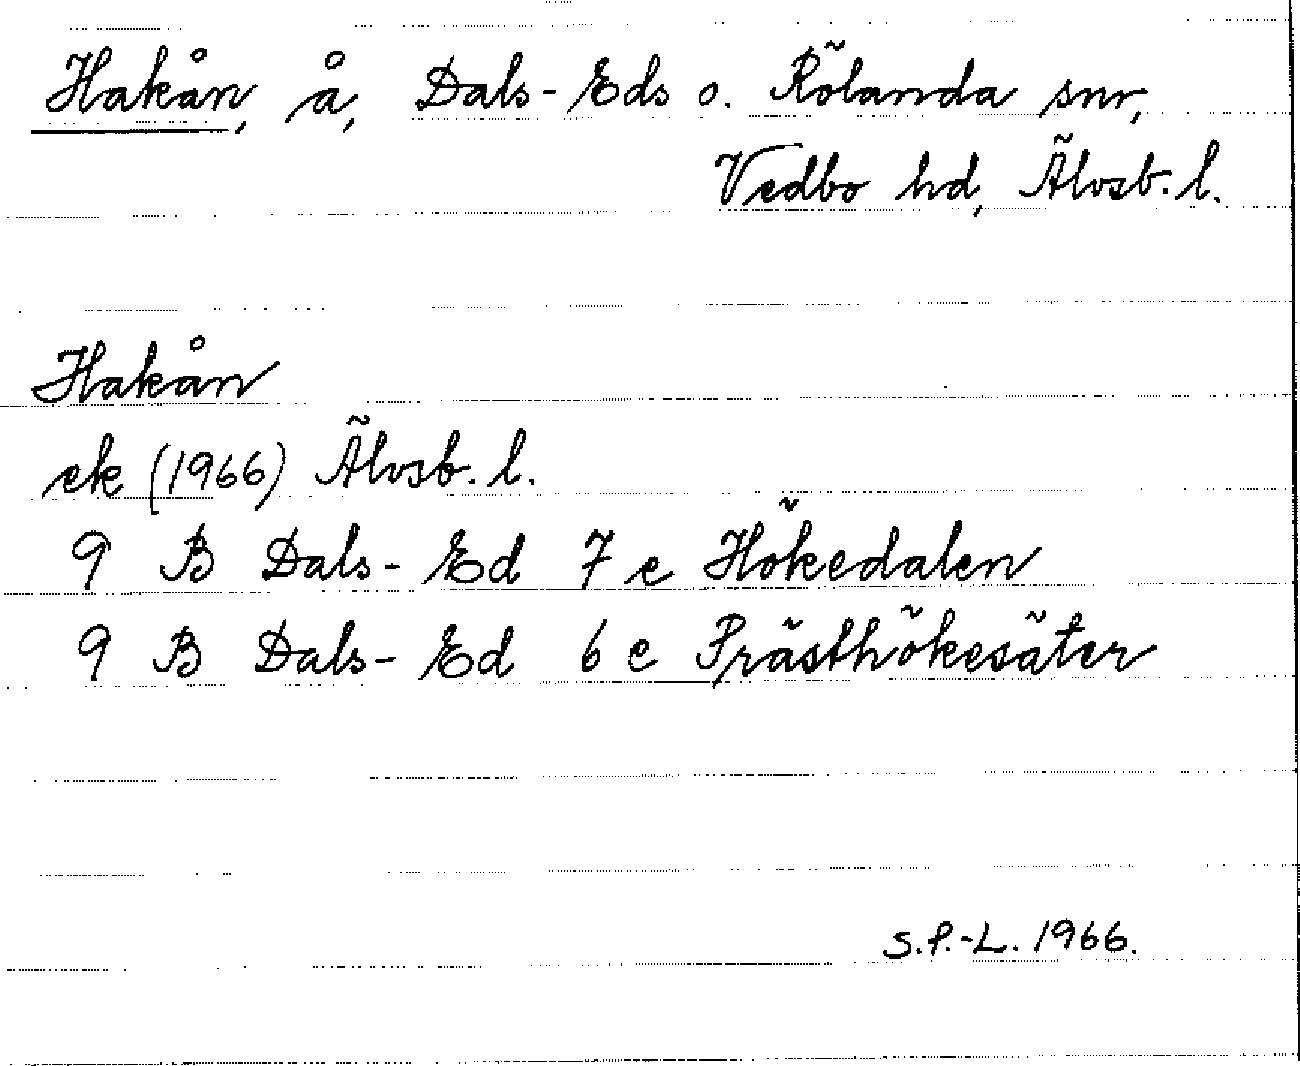 Hakån, å, Dals-Eds o. Rölanda snr,
Vedbo hd, Älvsb. l.
Hakån
ek (1966) Älvsb. l.
9 B Dals-Ed 7 e Hökedalen
9 B Dals-Ed 6 e Prästhökesäter
S.P.-L. 1966.